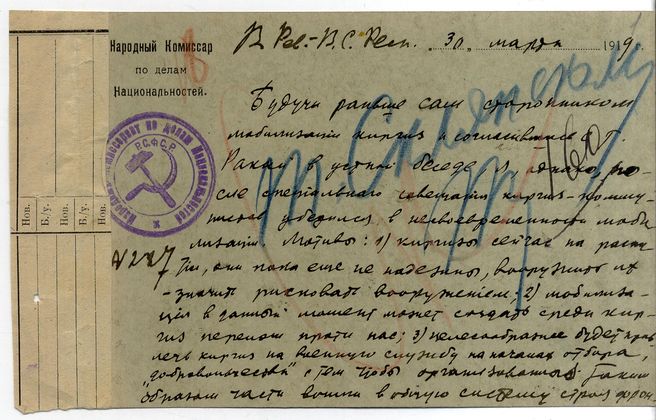 Народный Комиссар
по делам
Национальностей.
В Рев.-В.С. Респ. „30„ марта 1919 г.
Склянскому
Будучи раньше сам сторонником
мобилизации киргиз и согласившись с т.
в устной беседе, я, однако, по-
сле специального совещания киргиз-комму-
нистов убедился в несвоевременности моби-
лизации. Мотивы: 1) киргизы сейчас на распу-
тьи, они пока еще не надежны, вооружить их
-значит рисковать вооружением; 2) мобилиза-
ция в данный момент может создать среди кир-
гиз перелом против нас; 3) целесообразнее будет прив-
лечь киргиз на военную службу на началах отбора,
„добровольчества", с тем чтобы организованные таким
образом части вошли в общую систему строя
N 227
Народный Комиссариат по делам Национальностей
Р.С.Ф.С.Р.
Нов.
Б./у.
Нов.
Б./у.
Нов.